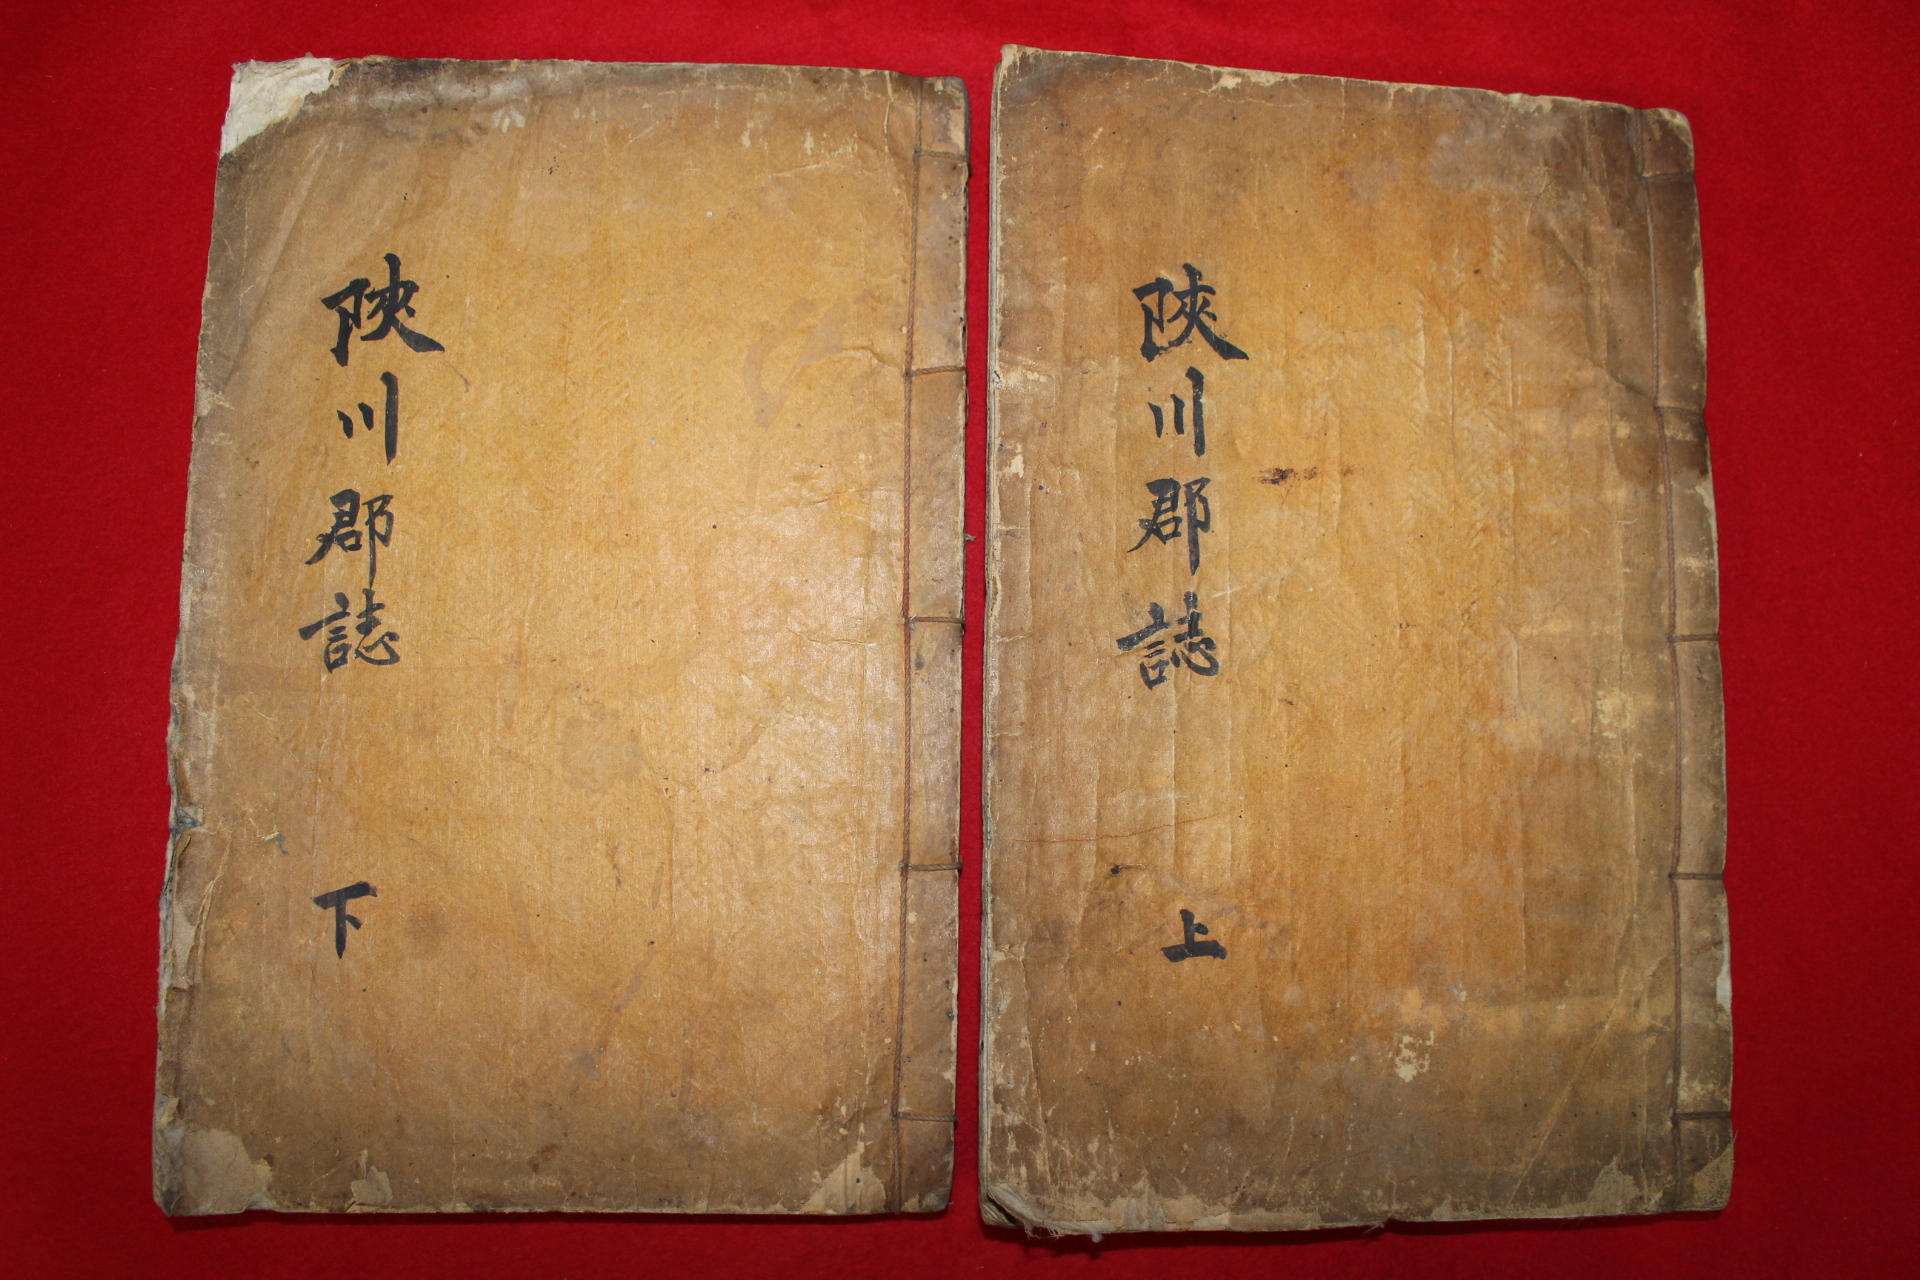 陜川郡誌
上
陜川郡誌
下